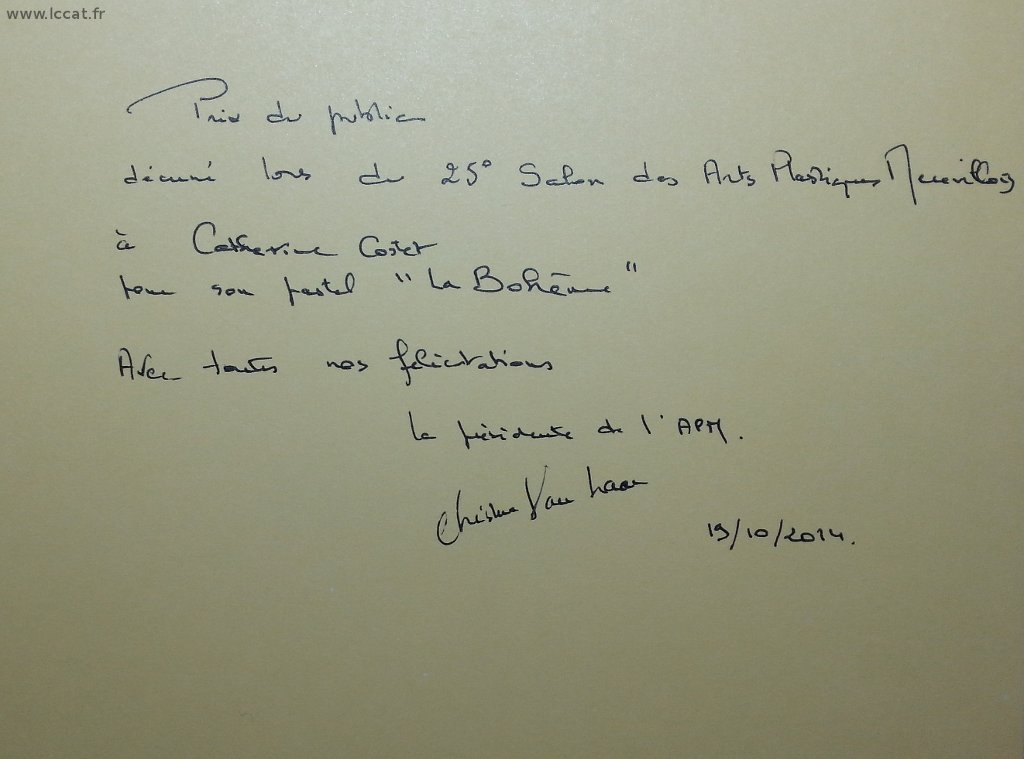 www.lccat.fr
Prix du public
décerné lors du 25° Salon des Arts Plastiques
à Catherine Costet
pour son pastel "La Bohème"
Avec toutes nos félicitations
la présidente de l'APM.
Van Laar
19/10/2014.